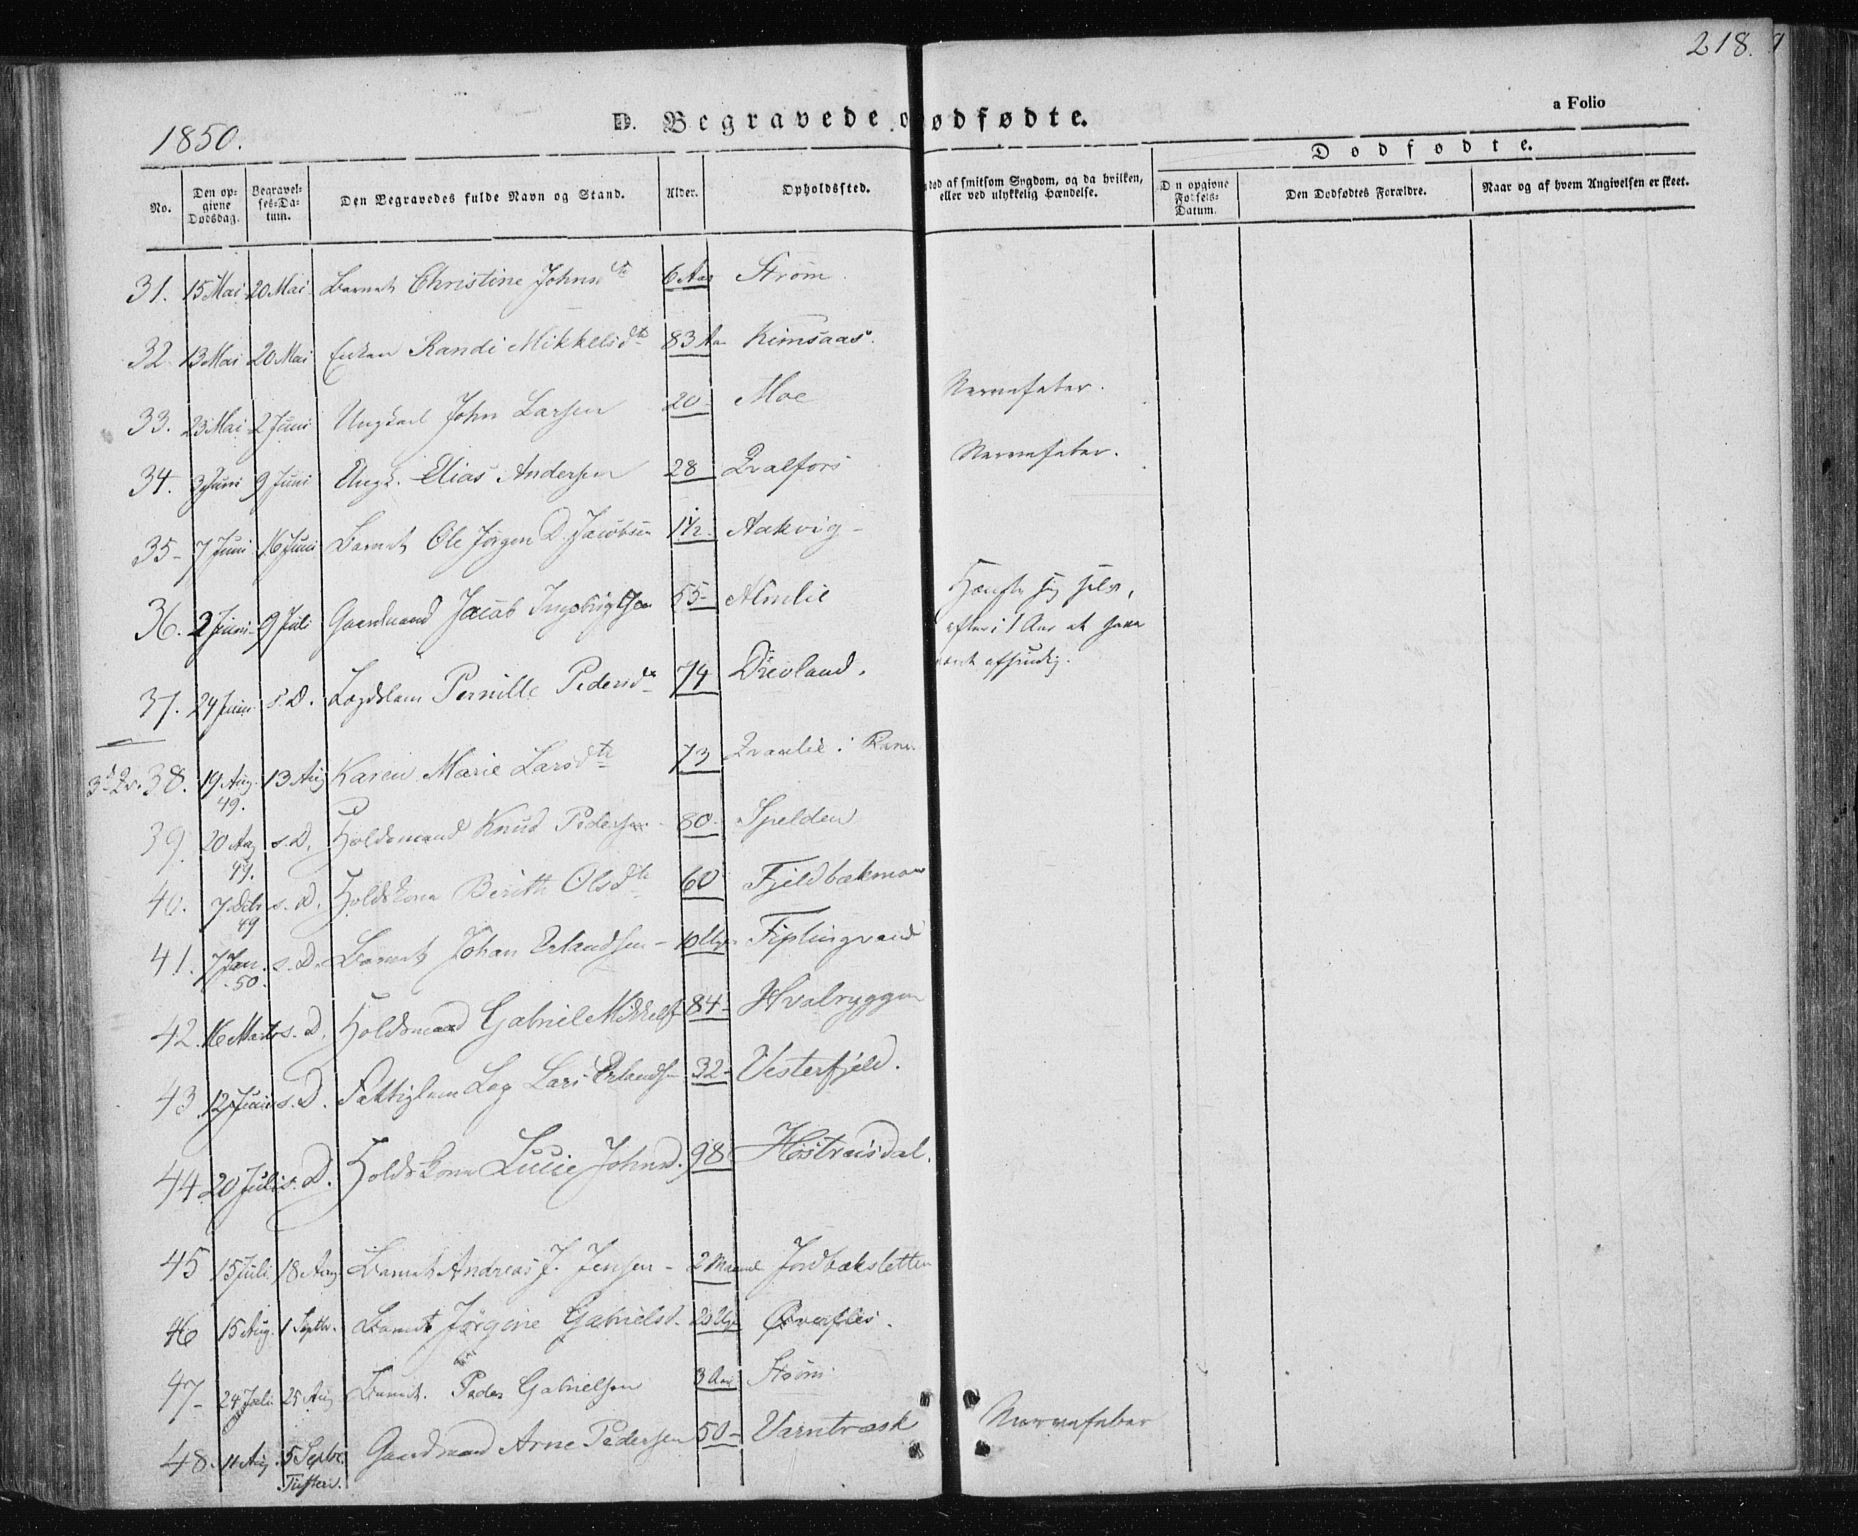 218.
a Folio
1850.
D. Begravede o
ødfødte.
Dødfødte.
No.
Den opgivne Dødsdag.
Begravelses-Datum.
Den Begravedes fulde Navn og Stand.
Alder.
Opholdssted.
død af smitsom Sygdom, og da hvilken, eller ved ulykkelig Hændelse.
Den opgivne Fødsels-Datum.
Den Dødfødtes Forældre.
Naar og af hvem Angivelsen er skeet.
31. 15 Mai 20 Mai Barnet Christine Johnsdtr 6 Aar Strøm.
32. 13 Mai 20 Mai Enken Randi Mikkelsdtr 83 Aar Kimsaas.
33. 23 Mai 2 Juni Ungkarl John Larsen 20 - Moe Nervefeber.
34. 3 Juni 9 Juni Ungk. Elias Andersen 28 Qvalfors Nervefeber.
35 - 7 Juni 16 Juni Barnet Ole Jørgen D. Jacobsen 1½ Aakvig -
36. 2 Juni 9 Juli Gaardmand Jacob Ingebrigtsen 55 - Almlie Hængte sig selv,
efter i 1 Aar at have
været afsindig.
37. 24 Juni s. D. Lægdslem Pernille Pedersdtr 74 Drevland.
38. 19 Aug. 49. 13 Aug Karen Marie Larsdtr 73 Qvanlie i Ranen
39. 20 Aug 49. s. D. Holdsmand Knud Pedersen 80 - Spelden
40. 7 Octr 49 s. D. Holdskone Berith Olsdtr 60 Fjeldbækmoe
41. 7 Jan. 50. s. D. Barnet Johan Erlandsen - 10 Uger Tiplingvand
42. 16 Marts s. D. Holdsmand Gabriel Mikkels. 84 - Hvalryggen
43. 12 Juni s. D. Fattiglem Lap Lars Erlands. 32 - Vesterfjeld.
44. 20 Juli s. D. Holdskone Lucie Johnsd. 98 Høstraisdal.
45 15 Juli 18 Aug Barnet Andreas J. Jensen - 2 Maand Jordbæksletten
46 15 Aug. 1 Septbr. Barnet Jørgine Gabrielsd. 23 Uger Øverflis.
47 - 24 Juli 25 Aug Barnet. Peder Gabrielsen 3 Aar Strøm
48. 11 Aug. 5 Septbr. Gaardmand Arne Pedersen 50 - Varntræsk Nervefeber